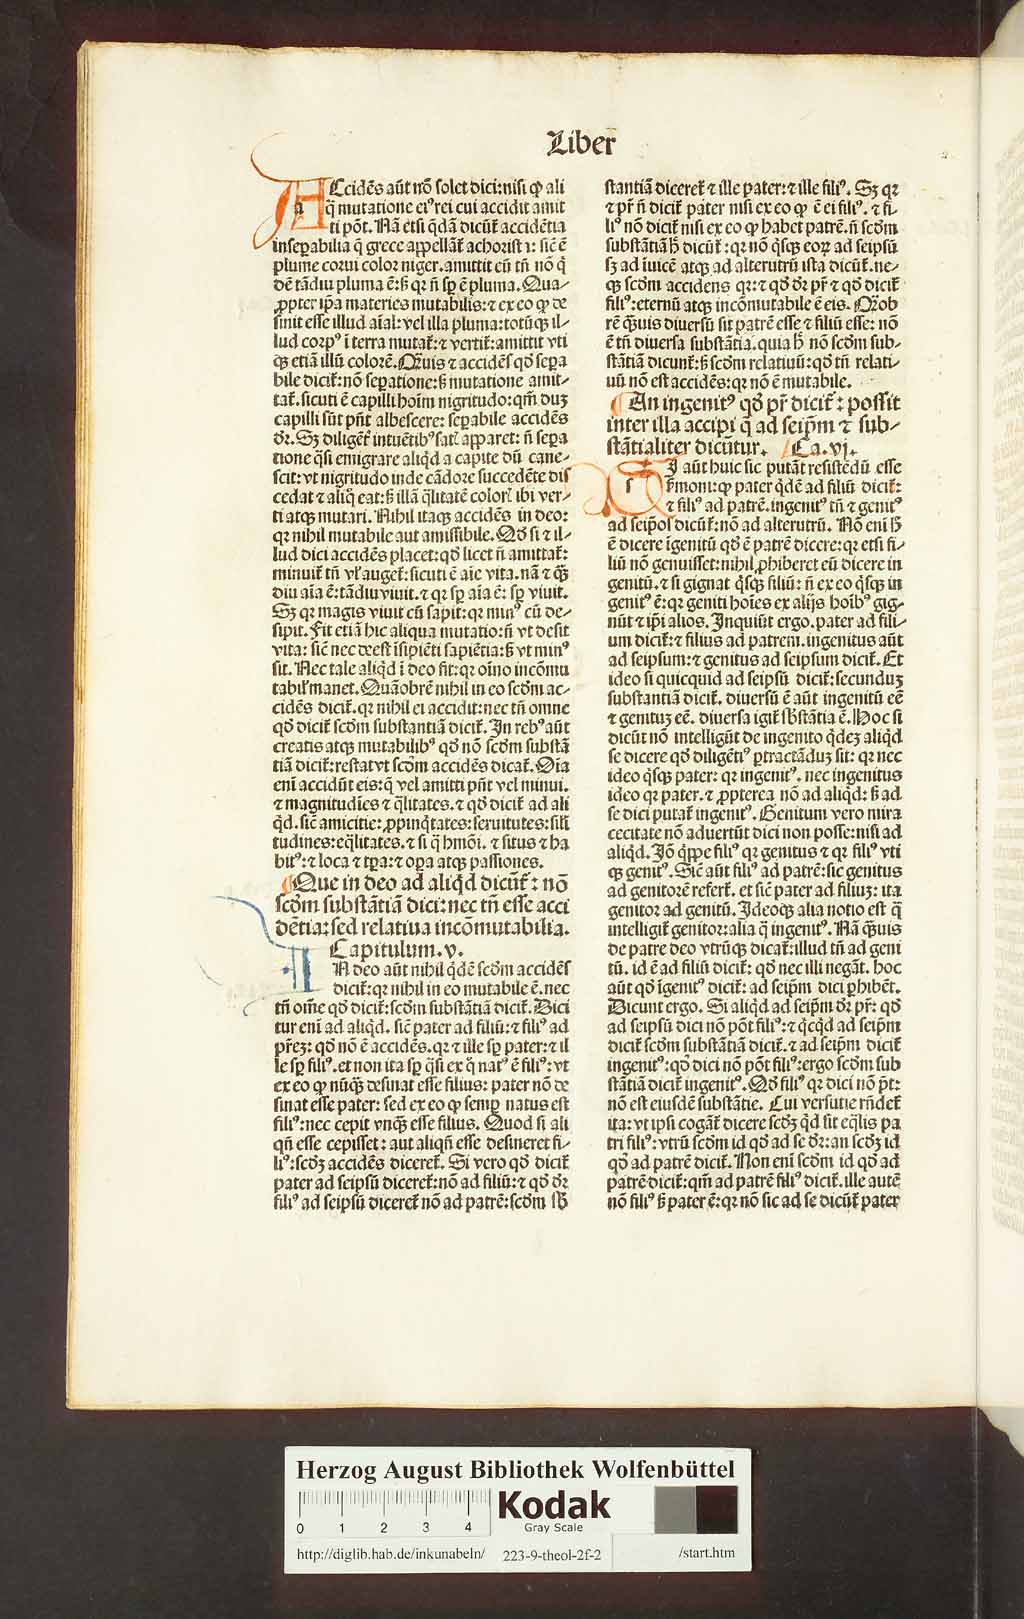 Liber
ACcidēs aūt nō solet dici: nisi qꝫ ali
q̄ mutatione eiꝰ rei cui accidit amit
ti pōt. Nā etsi q̄dā dicūt̄ accidētia
inseꝑabilia q̄ grece appellāt̄ achorista: sic̄ ē
plume corui color niger. amittit eū tn̄ nō q̄
dē tādiu pluma ē: sꝫ qꝛ n̄ sꝑ ē pluma. Qua⸗
ꝓpter ip̄a materies mutabilis: ⁊ ex eo qꝫ de
sinit esse illud aīal: vel illa pluma: totūqꝫ il⸗
lud corpꝰ ī terra mutat̄: ⁊ vertit̄: amittit vti
qꝫ etiā illū colorē. Quis ⁊ accidēs qd̄ seꝑa
bile dicit̄: nō seꝑatione: sꝫ mutatione amit⸗
tat̄. sicuti ē capilli hoīm nigritudo: qm̄ duꝫ
capilli sūt pn̄t albescere: seꝑabile accidēs
dr̄. Sꝫ diligēt̄ intuētibꝰ satꝭ apparet: n̄ seꝑa
tione q̄si emigrare aliq̄d a capite dū cane⸗
scit: vt nigritudo inde cādore succedēte dis
cedat ⁊ aliq̄ eat: sꝫ illā q̄litatē colorꝭ ibi ver⸗
ti atqꝫ mutari. Nihil itaqꝫ accidēs in deo:
qꝛ nihil mutabile aut amissibile. Qd̄ si ⁊ il⸗
lud dici accidēs placet: qd̄ licet n̄ amittat̄:
minuit̄ tn̄ vꝉ auget̄: sicuti ē aīe vita. nā ⁊ q̄ꝫ
diu aīa ē: tādiu viuit. ⁊ qꝛ sꝑ aīa ē: sꝑ viuit.
Sꝫ qꝛ magis viuit cū sapit: qꝛ minꝰ cū de⸗
sipit. Fit etiā hic aliqua mutatio: n̄ vt desit
vita: sic̄ nec deest īsipiēti sapiētia: sꝫ vt minꝰ
sit. Nec tale aliq̄d ī deo fit: qꝛ oīno incōmu
tabilꝭ manet. Quāobrē nihil in eo scd̄m ac⸗
cidēs dicit̄. qꝛ nihil ei accidit: nec tn̄ omne
qd̄ dicit̄ scd̄m substantiā dicit̄. In rebꝰ aūt
creatis atqꝫ mutabilibꝰ qd̄ nō scd̄m substā
tiā dicit̄: restat vt scd̄m accidēs dicat̄. Oīa
enī accidūt eis: q̄ vel amitti pn̄t vel minui.
⁊ magnitudīes ⁊ q̄litates. ⁊ qd̄ dicit̄ ad ali
q̄d. sic̄ amicitie: ꝓpinq̄tates: seruitutes: sili
tudines: eq̄litates. ⁊ si q̄ hm̄oi. ⁊ situs ⁊ ha
bitꝰ: ⁊ loca ⁊ tp̄a: ⁊ oꝑa atqꝫ passiones.
Que in deo ad aliq̄d dicūt̄: nō
scd̄m substātiā dici: nec tn̄ esse acci
dētia: sed relatiua incōmutabilia.
Capitulum. v.
IN deo aūt nihil q̄dē scd̄m accidēs
dicit̄: qꝛ nihil in eo mutabile ē. nec
tn̄ om̄e qd̄ dicit̄: scd̄m substātiā dicit̄. Dici
tur enī ad aliq̄d. sic̄ pater ad filiū: ⁊ filiꝰ ad
pr̄eꝫ: qd̄ nō ē accidēs. qꝛ ⁊ ille sꝑ pater: ⁊ il
le sꝑ filiꝰ. et non ita sꝑ q̄si ex q̄ natꝰ ē filiꝰ: vt
ex eo qꝫ nūqꝫ desinat esse filius: pater nō de
sinat esse pater: sed ex eo qꝫ semꝑ natus est
filiꝰ: nec cepit vnqꝫ esse filius. Quod si ali
qn̄ esse cepisset: aut aliqn̄ esse desineret fi⸗
liꝰ: scd̄ꝫ accidēs diceret̄. Si vero qd̄ dicit̄
pater ad seipsū diceret̄: nō ad filiū: ⁊ qd̄ dr̄
filiꝰ ad seipsū diceret̄ nō ad patrē: scd̄m sb̄
stantiā diceret̄ ⁊ ille pater: ⁊ ille filiꝰ. Sꝫ qꝛ
⁊ pr̄ n̄ dicit̄ pater nisi ex eo qꝫ ē ei filiꝰ. ⁊ fi⸗
liꝰ nō dicit̄ nisi ex eo qꝫ habet patrē. n̄ scd̄m
substātiā h̄ dicūt̄: qꝛ nō q̄sqꝫ eoꝝ ad seipsū
sꝫ ad īuicē atqꝫ ad alterutrū ista dicūt̄. ne⸗
qꝫ scd̄m accidens qꝛ: ⁊ qd̄ dr̄ pr̄ ⁊ qd̄ dicit̄
filiꝰ: eternū atqꝫ incōmutabile ē eis. Quob
rē q̄ꝫuis diuersū sit patrē esse ⁊ filiū esse: nō
ē tn̄ diuersa substātia. quia h̄ nō scd̄m sub⸗
stātiā dicunt̄: sꝫ scd̄m relatiuū: qd̄ tn̄ relati⸗
uū nō est accidēs: qꝛ nō ē mutabile.
An ingenitꝰ qd̄ pr̄ dicit̄: possit
inter illa accipi q̄ ad seip̄m ⁊ sub⸗
stātialiter dicūtur. Ca. vj.
SI aūt huic sic putāt resistēdū esse
ẜmoni: qꝫ pater q̄dē ad filiū dicit̄:
⁊ filiꝰ ad patrē. ingenitꝰ tn̄ ⁊ genitꝰ
ad seip̄os dicūt̄: nō ad alterutrū. Nō enī h̄
ē dicere īgenitū qd̄ ē patrē dicere: qꝛ etsi fi⸗
liū nō genuisset: nihil ꝓhiberet eū dicere in
genitū. ⁊ si gignat q̄sqꝫ filiū: n̄ ex eo q̄sqꝫ in
genitꝰ ē: qꝛ geniti hoīes ex alijs hoībꝰ gig⸗
nūt ⁊ ip̄i alios. Inquiūt ergo. pater ad fili⸗
um dicit̄: ⁊ filius ad patrem. ingenitus aūt
ad seipsum: ⁊ genitus ad seipsum dicit̄. Et
ideo si quicquid ad seipsū dicit̄: secunduꝫ
substantiā dicit̄. diuersū ē aūt ingenitū eē
⁊ genituꝫ eē. diuersa igit̄ sb̄stātia ē. Hoc si
dicūt nō intelligūt de ingenito q̄deꝫ aliq̄d
se dicere qd̄ diligētiꝰ ꝑtractāduꝫ sit: qꝛ nec
ideo q̄sqꝫ pater: qꝛ ingenitꝰ. nec ingenitus
ideo qꝛ pater. ⁊ ꝓpterea nō ad aliq̄d: sꝫ ad
se dici putat̄ ingenitꝰ. Genitum vero mira
cecitate nō aduertūt dici non posse: nisi ad
aliq̄d. Iō q̄ppe filiꝰ qꝛ genitus ⁊ qꝛ filiꝰ vti
qꝫ genitꝰ. Sic̄ aūt filiꝰ ad patrē: sic genitus
ad genitorē refert̄. et sic̄ pater ad filiuꝫ: ita
genitor ad genitū. Ideoqꝫ alia notio est q̄
intelligit̄ genitor: alia q̄ ingenitꝰ. Nā q̄ꝫuis
de patre deo vtrūqꝫ dicat̄: illud tn̄ ad geni
tū. id ē ad filiū dicit̄: qd̄ nec illi negāt. hoc
aūt qd̄ īgenitꝰ dicit̄: ad seip̄m dici ꝑhibēt.
Dicunt ergo. Si aliq̄d ad seip̄m dr̄ pr̄: qd̄
ad seipsū dici nō pōt filiꝰ: ⁊ q̄cq̄d ad seip̄m
dicit̄ scd̄m substātiā dicit̄. ⁊ ad seip̄m dicit̄
ingenitꝰ: qd̄ dici nō pōt filiꝰ: ergo scd̄m sub
stātiā dicit̄ ingenitꝰ. Qd̄ filiꝰ qꝛ dici nō p̄t:
nō est eiusdē substātie. Cui versutie rn̄det̄
ita: vt ipsi cogāt̄ dicere scd̄ꝫ q̄d sit eq̄lis pa
tri filiꝰ: vtrū scd̄m id qd̄ ad se dr̄: an scd̄ꝫ id
qd̄ ad patrē dicit̄. Non enī scd̄m id qd̄ ad
patrē dicit̄: qm̄ ad patrē filiꝰ dicit̄. ille autē
nō filiꝰ sꝫ pater ē: qꝛ nō sic ad se dicūt̄ pater
Herzog August Bibliothek Wolfenbüttel
0 1 2 3 4
Kodak
Gray Scale
http://diglib.hab.de/inkunabeln/ 223-9-theol-2f-2 /start.htm